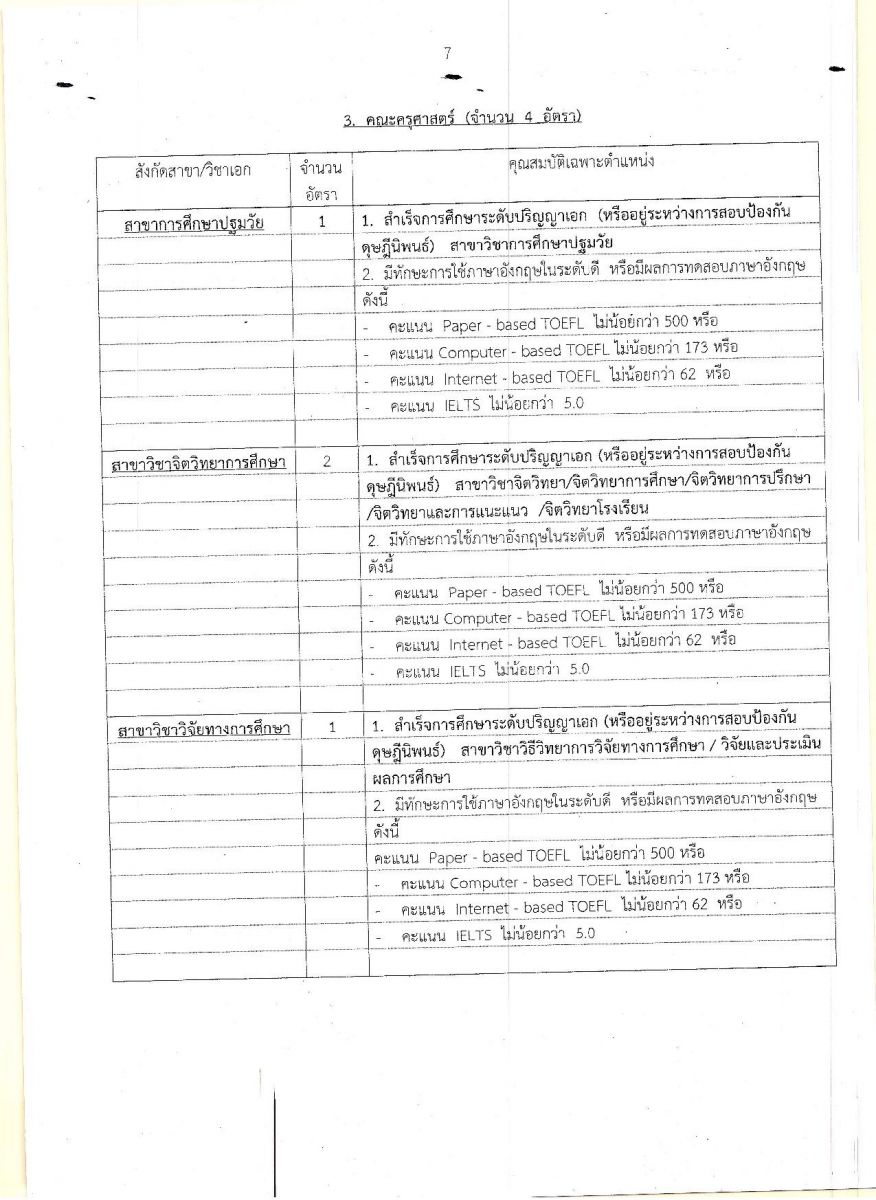 7
3. คณะครุศาสตร์ (จำนวน 4 อัตรา)
สังกัดสาขา/วิชาเอก
จำนวน
อัตรา
คุณสมบัติเฉพาะตำแหน่ง
สาขาการศึกษาปฐมวัย
1
1. สำเร็จการศึกษาระดับปริญญาเอก (หรืออยู่ระหว่างการสอบป้องกัน
ดุษฎีนิพนธ์) สาขาวิชาการศึกษาปฐมวัย
2. มีทักษะการใช้ภาษาอังกฤษในระดับดี หรือมีผลการทดสอบภาษาอังกฤษ
ดังนี้
- คะแนน Paper - based TOEFL ไม่น้อยกว่า 500 หรือ
- คะแนน Computer - based TOEFL ไม่น้อยกว่า 173 หรือ
- คะแนน Internet - based TOEFL ไม่น้อยกว่า 62 หรือ
- คะแนน IELTS ไม่น้อยกว่า 5.0
สาขาวิชาจิตวิทยาการศึกษา
2
1. สำเร็จการศึกษาระดับปริญญาเอก (หรืออยู่ระหว่างการสอบป้องกัน
ดุษฎีนิพนธ์) สาขาวิชาจิตวิทยา/จิตวิทยาการศึกษา/จิตวิทยาการปรึกษา
/จิตวิทยาและการแนะแนว /จิตวิทยาโรงเรียน
2. มีทักษะการใช้ภาษาอังกฤษในระดับดี หรือมีผลการทดสอบภาษาอังกฤษ
ดังนี้
- คะแนน Paper - based TOEFL ไม่น้อยกว่า 500 หรือ
- คะแนน Computer - based TOEFL ไม่น้อยกว่า 173 หรือ
- คะแนน Internet - based TOEFL ไม่น้อยกว่า 62 หรือ
- คะแนน IELTS ไม่น้อยกว่า 5.0
สาขาวิชาวิจัยทางการศึกษา
1
1. สำเร็จการศึกษาระดับปริญญาเอก (หรืออยู่ระหว่างการสอบป้องกัน
ดุษฎีนิพนธ์) สาขาวิชาวิธีวิทยาการวิจัยทางการศึกษา / วิจัยและประเมิน
ผลการศึกษา
2. มีทักษะการใช้ภาษาอังกฤษในระดับดี หรือมีผลการทดสอบภาษาอังกฤษ
ดังนี้
คะแนน Paper - based TOEFL ไม่น้อยกว่า 500 หรือ
- คะแนน Computer - based TOEFL ไม่น้อยกว่า 173 หรือ
- คะแนน Internet - based TOEFL ไม่น้อยกว่า 62 หรือ
- คะแนน IELTS ไม่น้อยกว่า 5.0